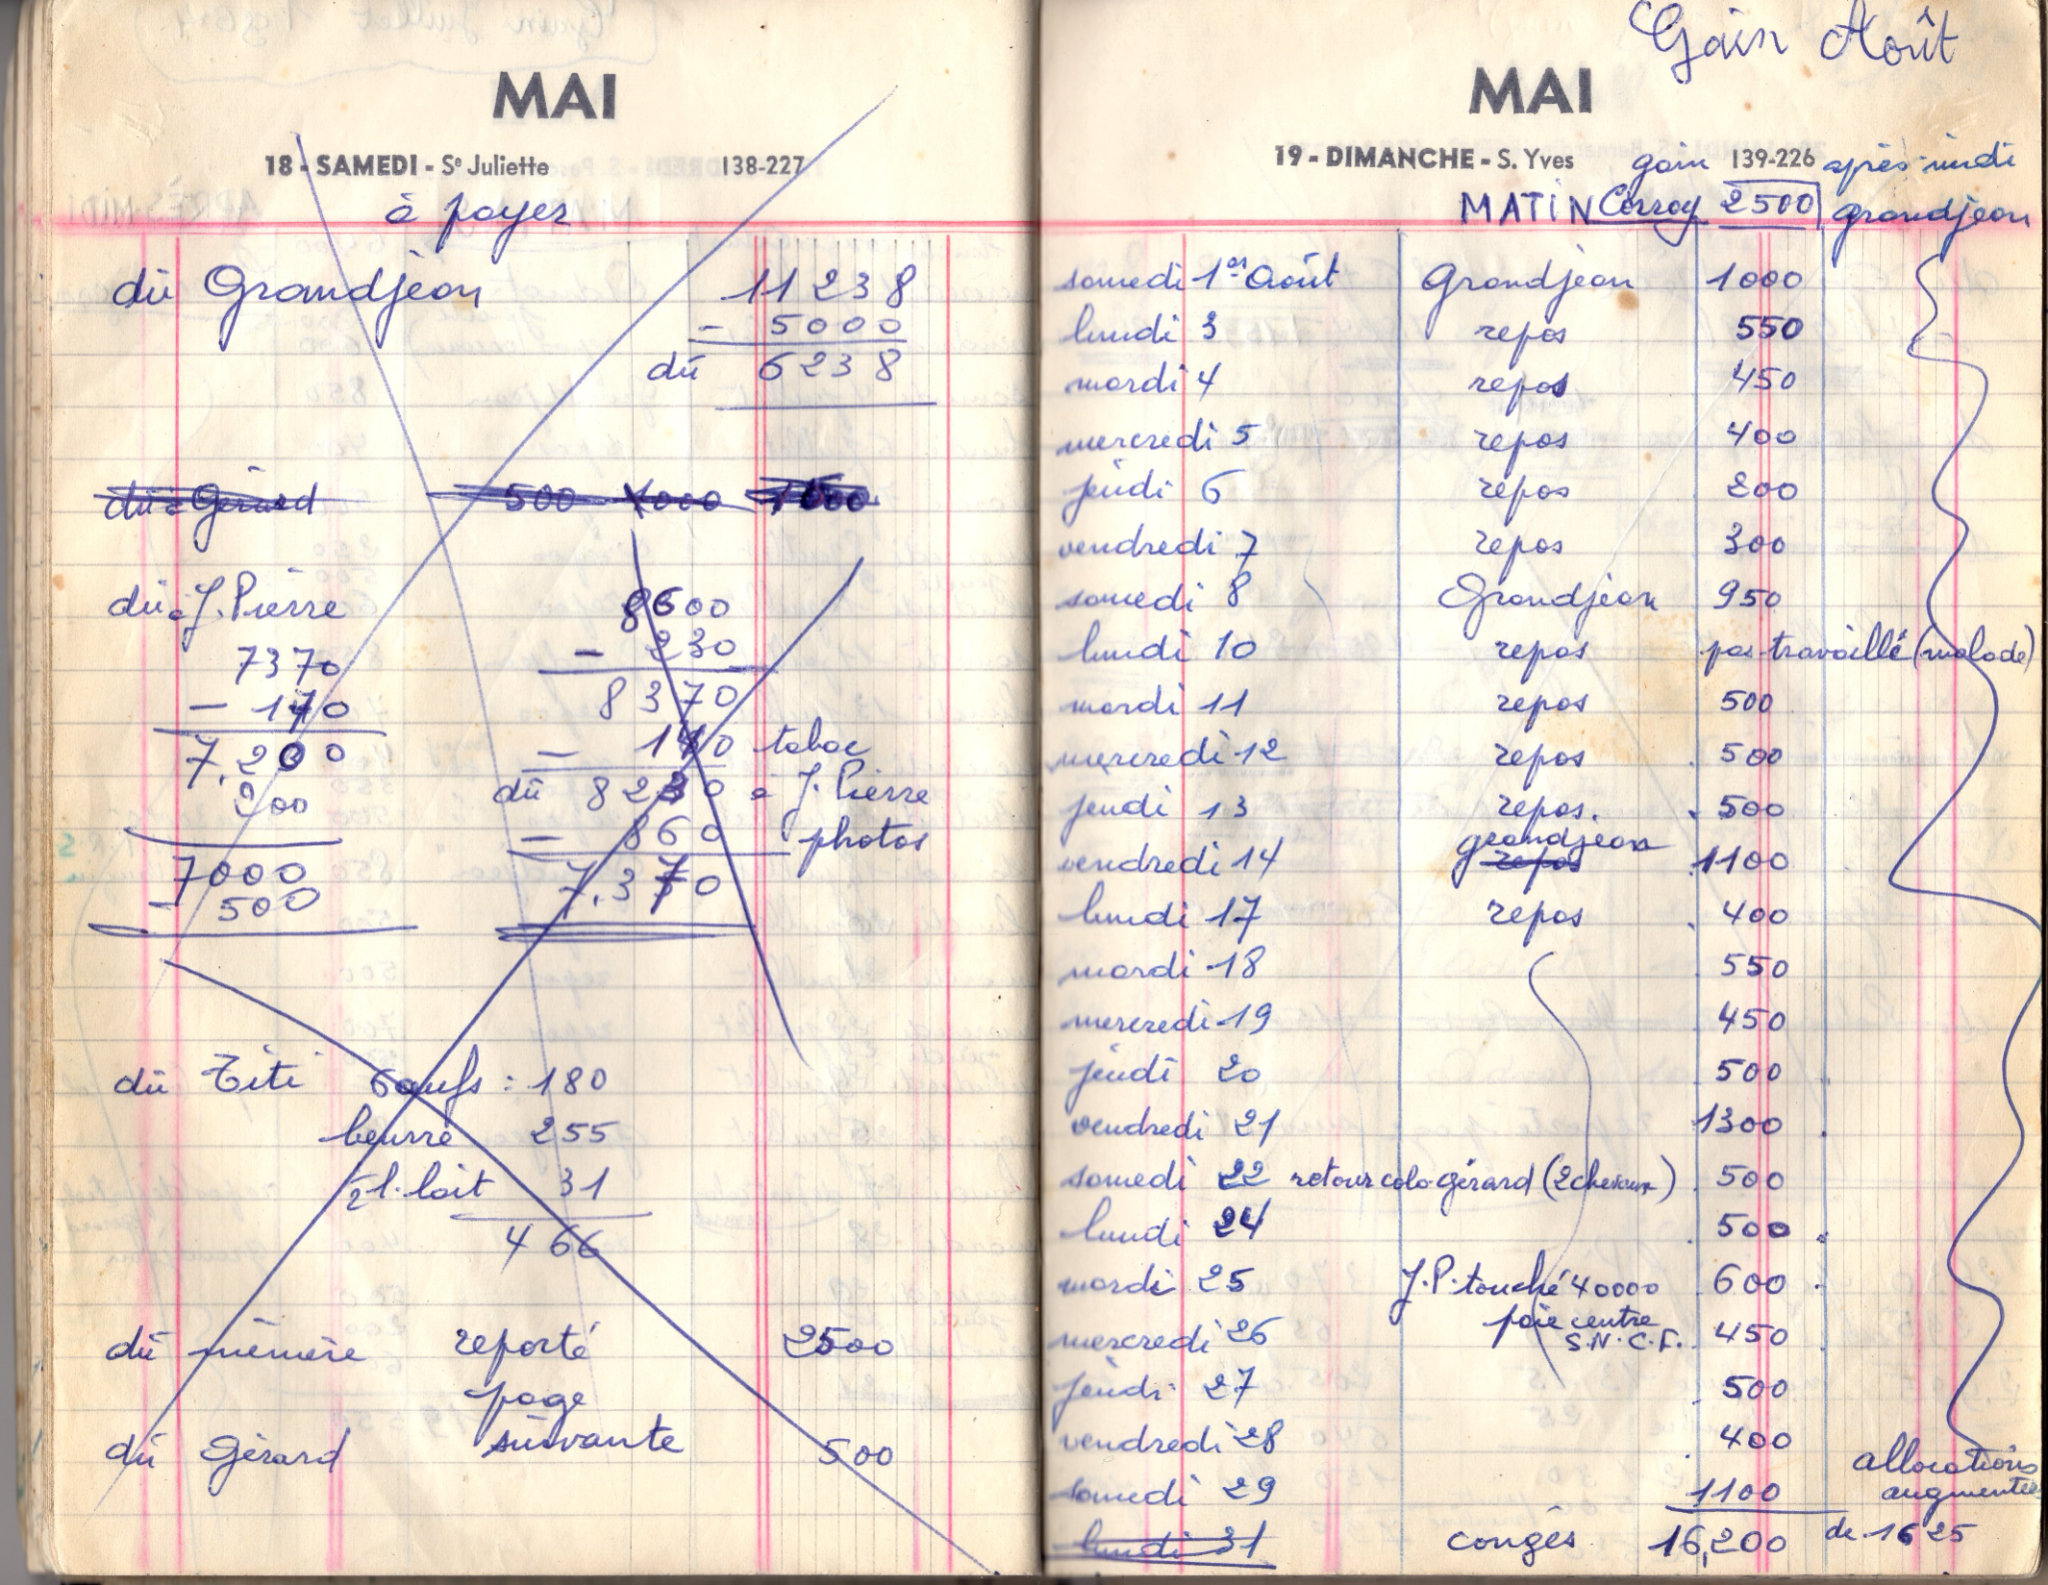 MAI
18 - SAMEDI - Se Juliette 138-227
à payer
dû Grandjean 11238
- 5000
dû 6238
dû à Gérard 500 1000
dû à J. Pierre 8600
7370 - 230
- 170 8370
7.200 - 140 tabac
200 dû 8230 à J. Pierre
7000 - 860 photos
- 500 7.370
dû Titi 6 œufs : 180
beurre 255
lait 31
466
dû mémère reporté 2500
page
dû Gérard suivante 500
Gain Août
MAI
19 - DIMANCHE - S. Yves gain 139-226 après-midi
MATIN Corroy 2500 grandjean
samedi 1er Août Grandjean 1000
lundi 3 repos 550
mardi 4 repos 450
mercredi 5 repos 400
jeudi 6 repos 200
vendredi 7 repos 300
samedi 8 Grandjean 950
lundi 10 repos pas travaillé (malade)
mardi 11 repos 500
mercredi 12 repos 500
jeudi 13 repos. 500
grandjean
vendredi 14 repos 1100
lundi 17 repos 400
mardi 18 550
mercredi 19 450
jeudi 20 500
vendredi 21 1300
samedi 22 retour colo-gérard (2 chevaux) 500
lundi 24 500
mardi 25 J.P. touché 40000 600
paie centre
mercredi 26 S.N.C.F. 450
jeudi 27 500
vendredi 28 400
allocations
samedi 29 1100 augmentées
lundi 31 congés 16,200 de 1625